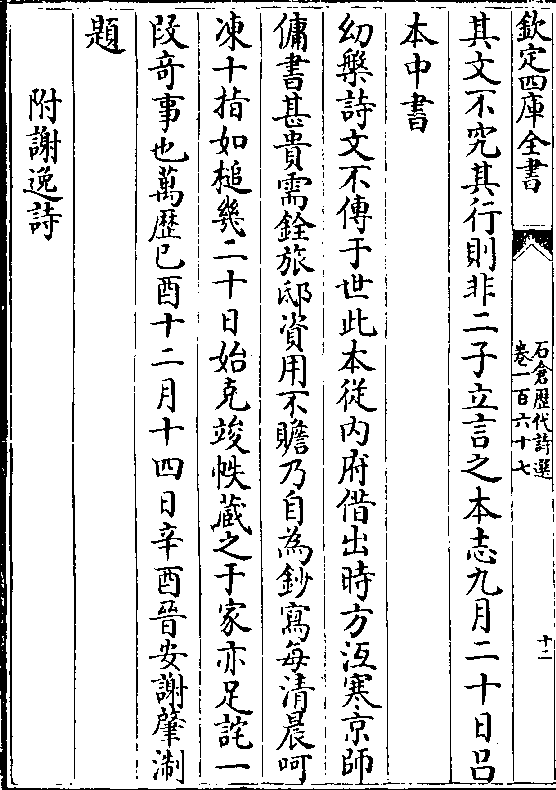 欽定四庫全書
石倉歷代詩選
卷一百六十七
十二
其文不究其行則非二子立言之本志九月二十日呂
本中書
幼槃詩文不傳于世此本從内府借出時方沍寒京師
傭書甚貴需銓旅邸資用不贍乃自為鈔寫每清晨呵
凍十指如槌幾二十日始克竣帙藏之于家亦足詫一
段竒事也萬歴已酉十二月十四日辛酉晉安謝肇淛
題
附謝逸詩